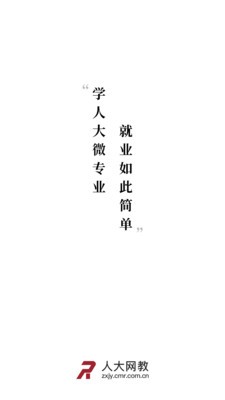 “学人大微专业
就业如此简单”
人大网教
zxjy.cmr.com.cn